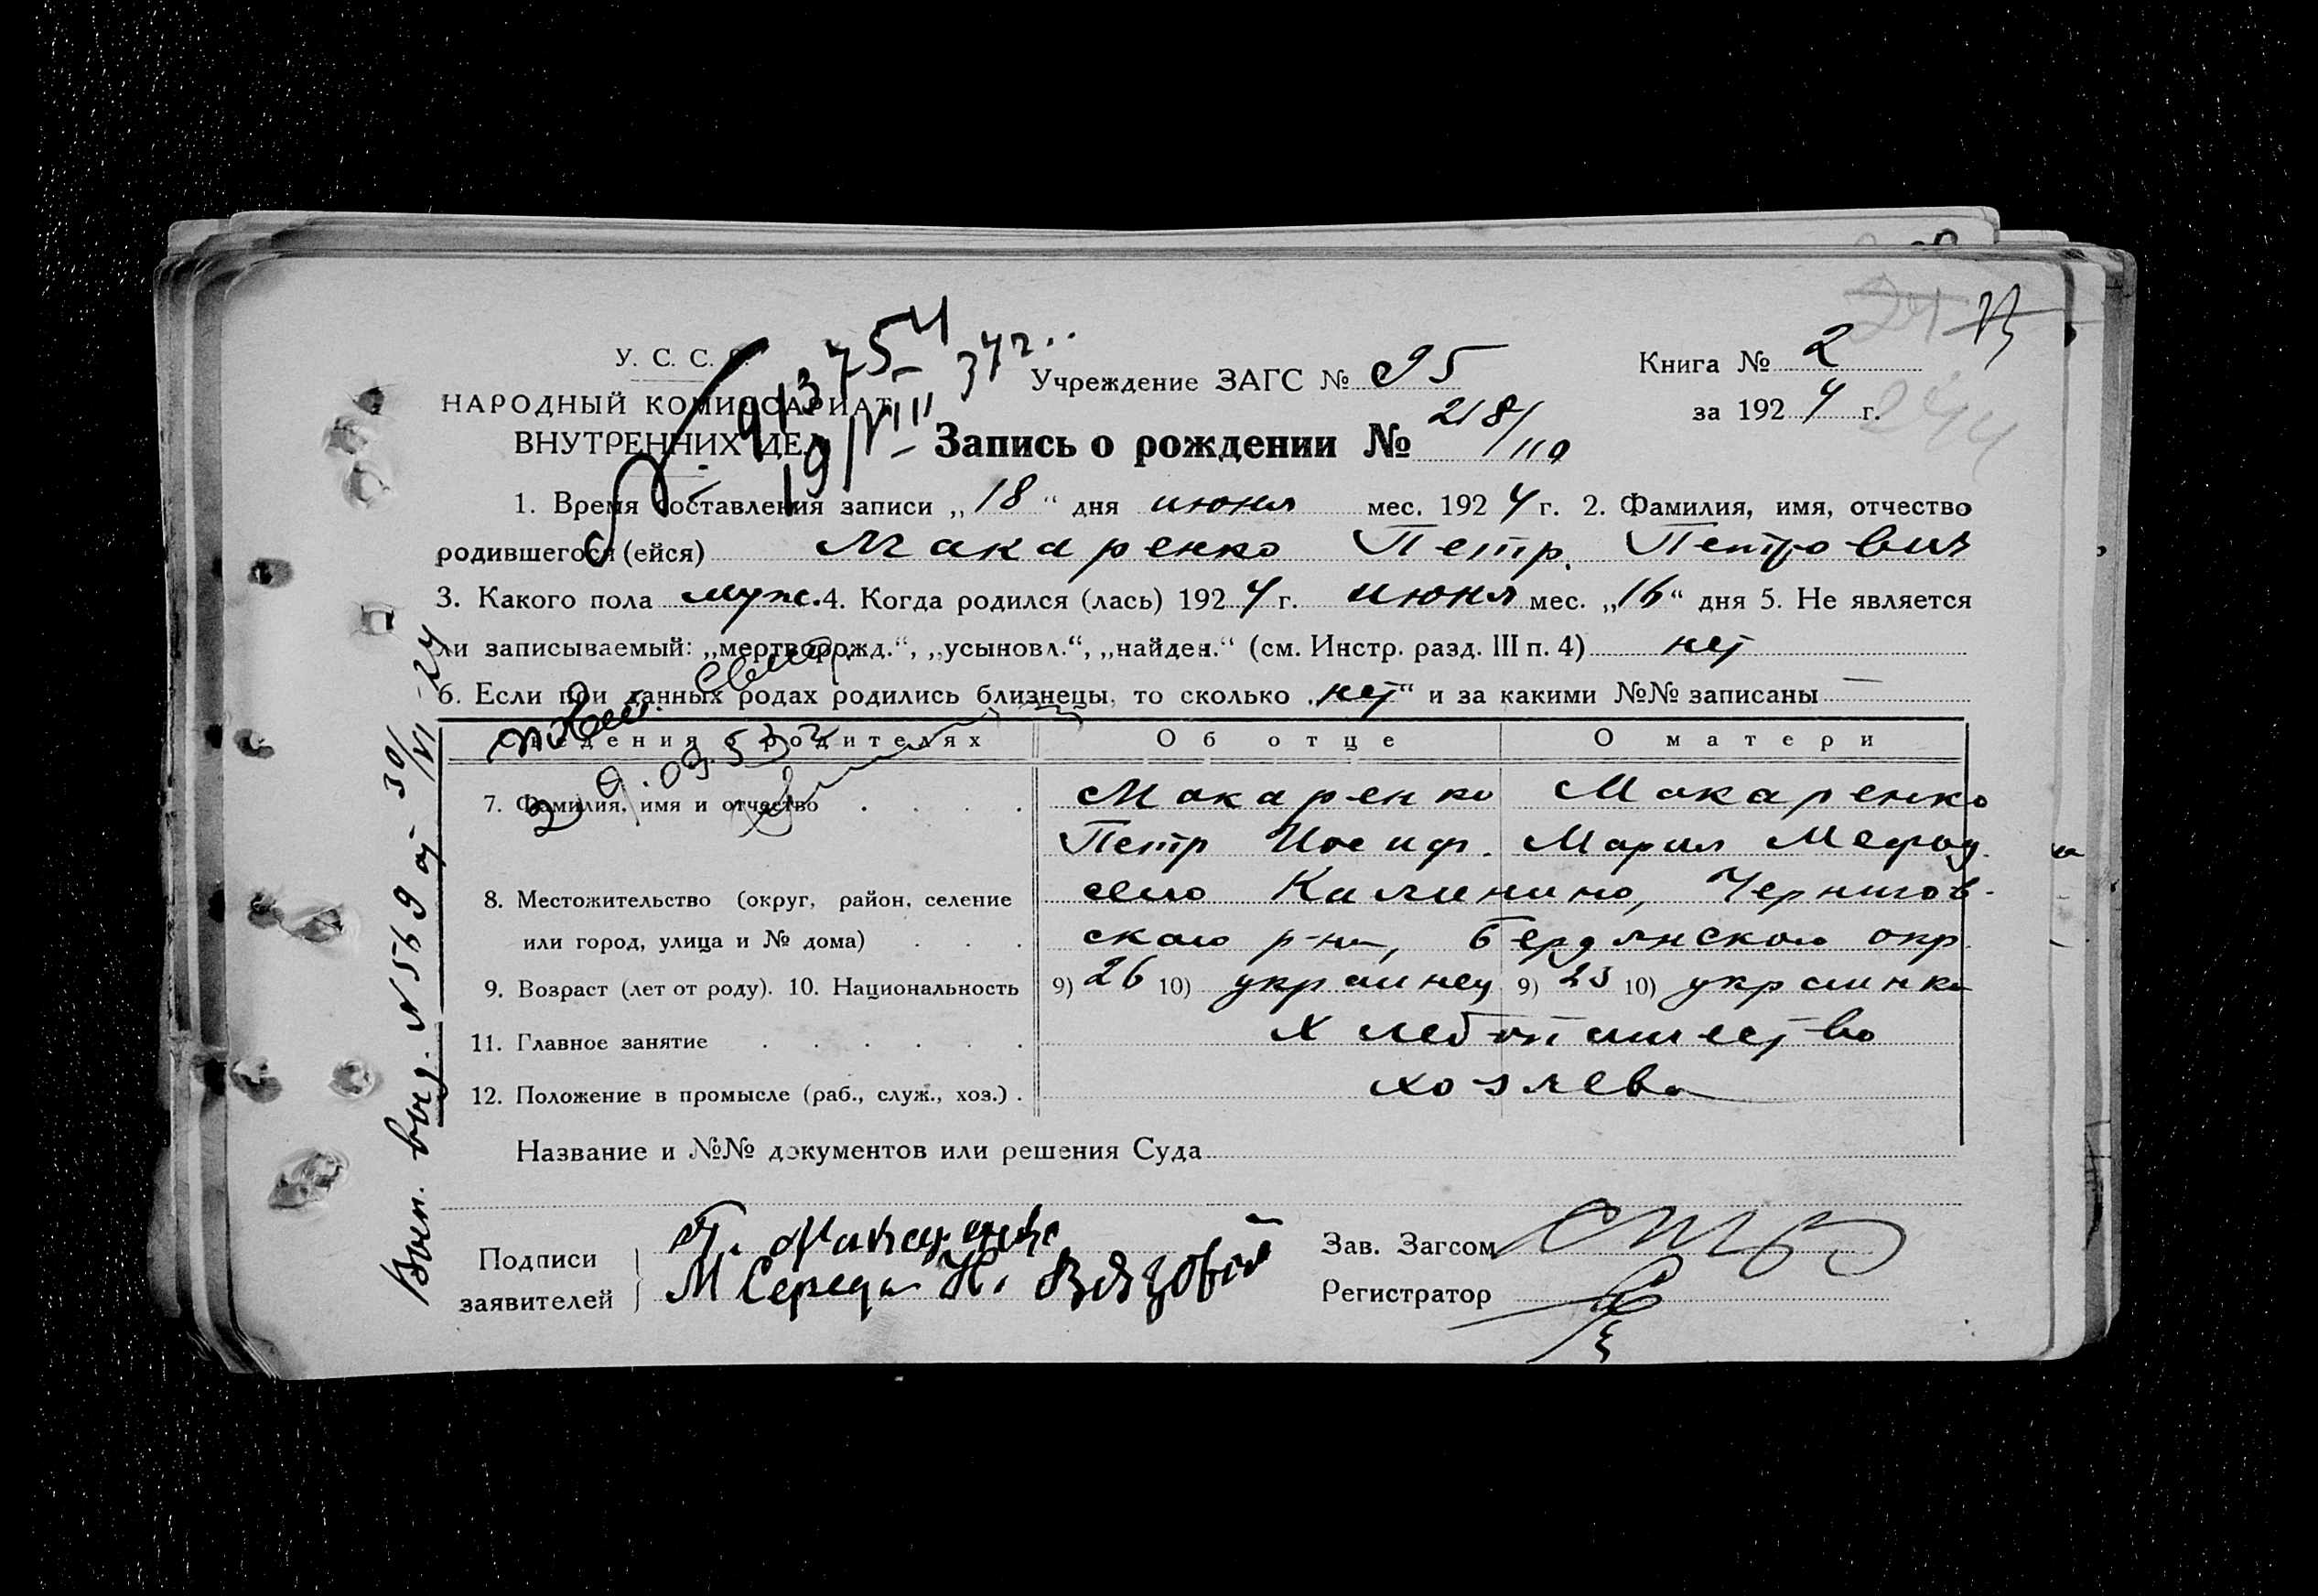 У. С. С.
НАРОДНЫЙ КОМИССАРИАТ
ВНУТРЕННИХ ДЕЛ
Учреждение ЗАГС № 95
Книга № 2
за 1924 г.
244
Запись о рождении № 218/110
1. Время составления записи „18“ дня июня мес. 1924 г. 2. Фамилия, имя, отчество
родившегося (ейся) Макаренко Петр Петрович
3. Какого пола муж. 4. Когда родился (лась) 1924 г. июня мес. „16“ дня 5. Не является
ли записываемый: „мертворожд.“, „усыновл.“, „найден.“ (см. Инстр. разд. III п. 4) нет
6. Если при данных родах родились близнецы, то сколько „нет“ и за какими №№ записаны —
Сведения о родителях Об отце О матери
7. Фамилия, имя и отчество . . . Макаренко Макаренко
Петр Иосиф. Мария Мефод.
8. Местожительство (округ, район, селение село Калинино, Чернигов-
или город, улица и № дома) . . . ского р-на, Бердянского окр.
9. Возраст (лет от роду). 10. Национальность 9) 26 10) украинец 9) 23 10) украинка
11. Главное занятие . . . . . . Хлебопашество
12. Положение в промысле (раб., служ., хоз.) . хозяева
Название и №№ документов или решения Суда
Подписи заявителей
П. Макаренко
М Середа Н. Вязовой
Зав. Загсом
Регистратор
Вып. выд. № 569 от 30/VI-24